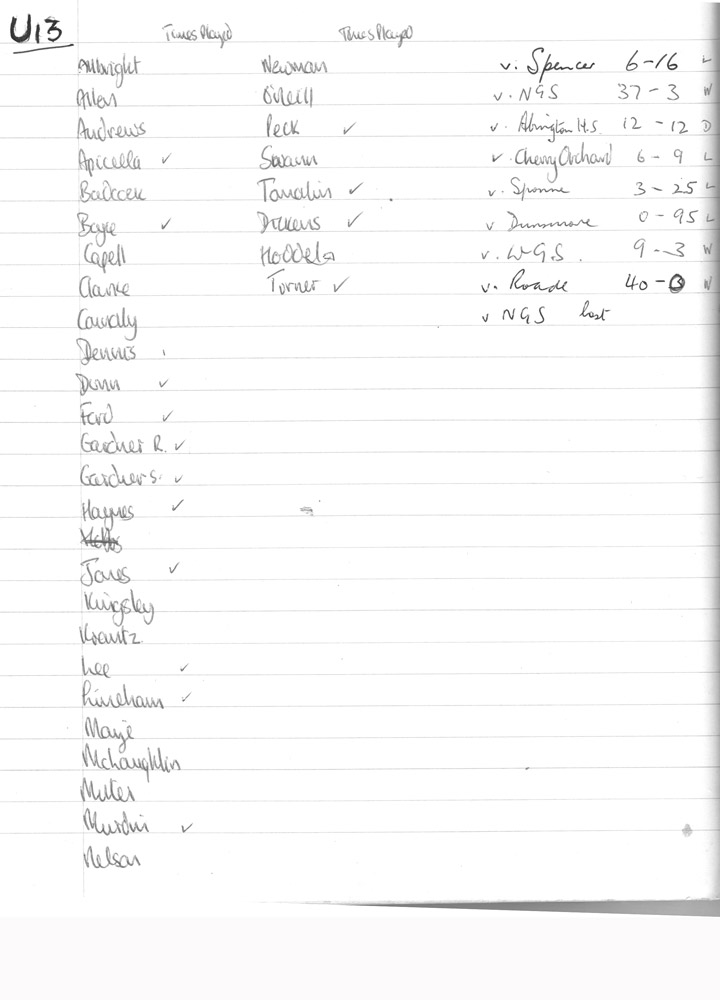 U13
Times Played Times Played
Allbright Newman v. Spencer 6-16 L
Allen O'Neill v. NGS 37-3 W
Andrews Peck ✓ v. Abington H.S. 12-12 D
Apicella ✓ Swann v. Cherry Orchard 6-9 L
Tomalin ✓ v. Sponne 3-25 L
✓ Dickens ✓ v Dunsmore 0-95 L
Capell v. W.G.S. 9-3 W
Clarke Turner ✓ v. Roade 40-0 W
v NGS lost
Dennis
Dunn ✓
Ford ✓
Gardner R. ✓
Gardner S. ✓
Haynes ✓
Jones ✓
Kingsley
Krantz
Lee ✓
Lineham ✓
McLaughlin
✓
Nelson